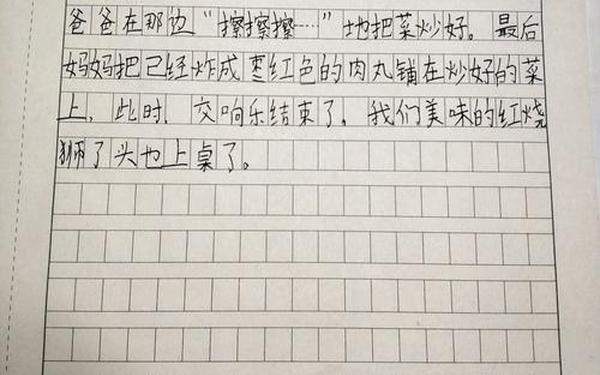 爸爸在那边“擦擦擦……”地把菜炒好。最后
妈妈把已经炸成枣红色的肉丸铺在炒好的菜
上，此时，交响乐结束了，我们美味的红烧
狮了头也上桌了。